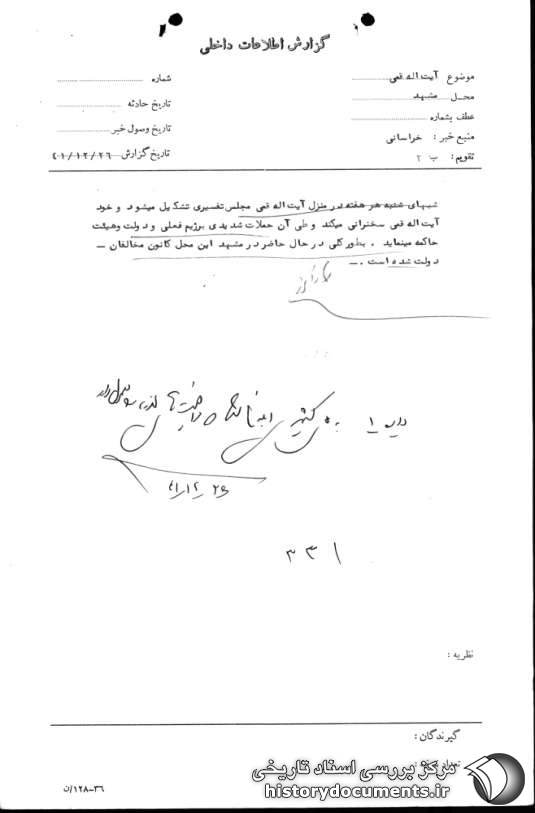 گزارش اطلاعات داخلی
موضوع آیت اله قمی
محل مشهد
عطف بشماره
منبع خبر : خراسانی
تقویم : ب ۲
شماره
تاریخ حادثه
تاریخ وصول خبر
تاریخ گزارش ۴۱/۱۲/۲۶
شبهای شنبه هر هفته در منزل آیت اله قمی مجلس تفسیری تشکیل میشود و خود
آیت اله قمی سخنرانی میکند و طی آن حملات شدیدی برژیم فعلی و دولت وهیئت
حاکمه مینماید . بطور کلی در حال حاضر در مشهد این محل کانون مخالفان –
دولت شده است . –
۲۶ ۱۲ ۴۱
۳۳۱
نظریه :
گیرندگان :
مرکز بررسی اسناد تاریخی
historydocuments.ir
۳۶–۱۲۸/ن